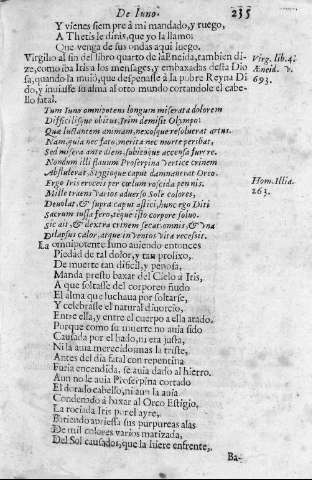 De Iuno. 235
Y vienes siempre à mi mandado, y ruego,
A Thetis le diràs, que yo la llamo;
Que venga de sus ondas aqui luego.
Virgilio al fin del libro quarto de la Eneida, tambien di-
ze, como iba Iris a los mensages, y embaxadas desta Dio
sa, quando la muiò, que despenasse à la pobre Reyna Di
do, y inuiasse su alma al orto mundo cortandole el cabe-
llo fatal.
Virg. lib. 4.
Æneid. v.
693.
Tum Iuno omnipotens longum miserata dolorem
Difficilisque obitus, Irim demisit Olympo:
Quæ luctantem animam, nexosque resolueret artus.
Nam, quia nec fato, merita nec morte peribat,
Sed misera ante diem, subitoque accensa furore.
Nondum illi flauum Proserpina vertice crinem
Abstulerat, Stygioque caput damnauerat Orco.
Ergo Iris croceis per cælum roscida pennis.
Mille traens varios aduerso Sole colores,
Deuolat, & supra caput astici, hunc ego Diti
Sacrum iussa fero, teque isto corpore soluo.
Sic ait, & dextra crinem secat, omnis, & vna
Dilapsus calor, atque in ventos vita recessit.
Hom. Illia.
263.
La omnipotente Iuno auiendo entonces
Piedad de tal dolor, y tan prolixo,
De muerte tan dificil, y penosa,
Manda presto baxar del Cielo a Iris,
A que soltasse del corporeo ñudo
El alma que luchaua por soltarse,
Y celebrasse el natural diuorcio,
Entre ella, y entre el cuerpo a ella atado.
Porque como su muerte no auia sido
Causada por el hado, ni era justa,
Ni la auia merecido, mas la triste,
Antes del dia fatal con repentina
Furia encendida, se auia dado al hierro.
Aun no le auia Proserpina cortado
El dorado cabello, ni aun la auia
Condenado à baxar al Orco Estigio,
La rociada Iris por el ayre,
Batiendo apriessa sus purpureas alas
De mil colores varios matizada,
Del Sol causados, que la hiere enfrente,
Ba-